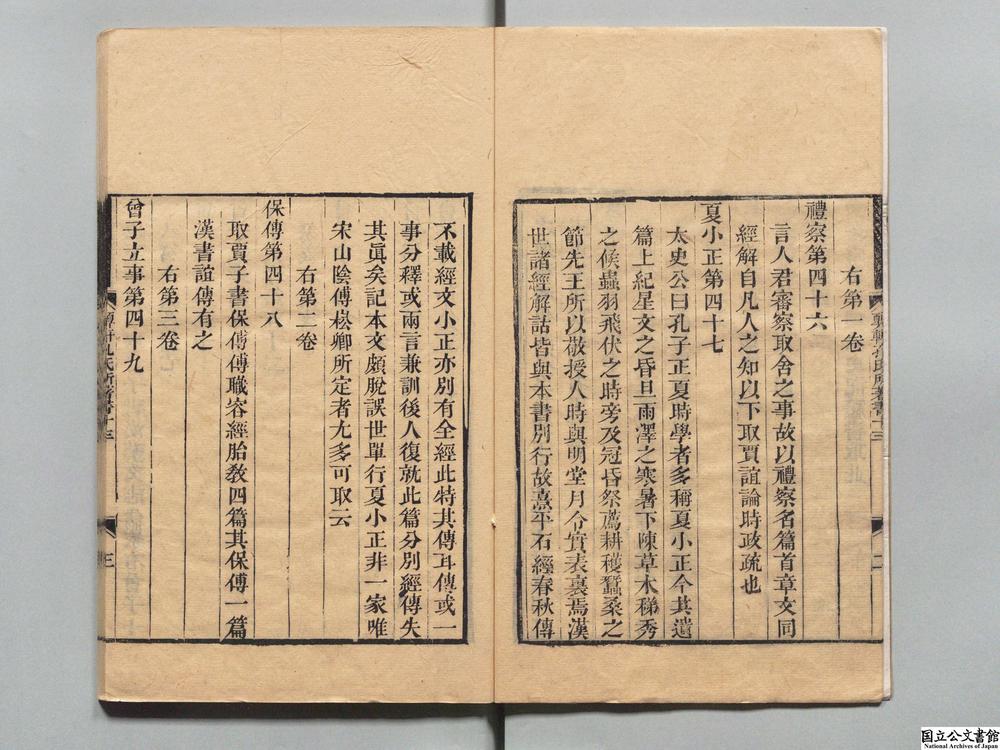 右第一卷
禮察第四十六
言人君審察取舍之事故以禮察名篇首章文同
經解自凡人之知以下取賈誼論時政疏也
夏小正第四十七
太史公曰孔子正夏時學者多稱夏小正今其遺
篇上紀星文之昏旦雨澤之寒暑下陳草木稊秀
之候蟲羽飛伏之時旁及冠昏祭薦耕穫蠶桑之
節先王所以敬授人時與明堂月令實表裏焉漢
世諸經解詁皆與本書別行故熹平石經春秋傳
不載經文小正亦別有全經此特其傳耳傳或一
事分釋或兩言兼訓後人復就此篇分別經傳失
其眞矣記本文頗脫誤世單行夏小正非一家唯
宋山陰傅崧卿所定者尤多可取云
右第二卷
保傅第四十八
取賈子書保傅傅職容經胎敎四篇其保傅一篇
漢書誼傳有之
右第三卷
曾子立事第四十九
顨軒孔氏所著書十三
二
三
国立公文書館
National Archives of Japan